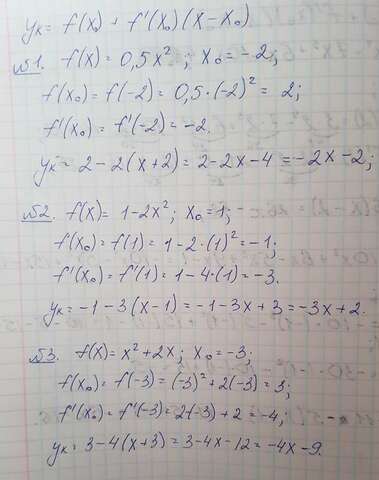 yк = f(x₀) + f'(x₀)(x-x₀)
№1. f(x) = 0,5x²; x₀ = -2;
f(x₀) = f(-2) = 0,5·(-2)² = 2;
f'(x₀) = f'(-2) = -2.
yк = 2-2(x+2) = 2-2x-4 = -2x-2;
№2. f(x) = 1-2x²; x₀ = 1;
f(x₀) = f(1) = 1-2·(1)² = -1;
f'(x₀) = f'(1) = 1-4·(1) = -3.
yк = -1-3(x-1) = -1-3x+3 = -3x+2.
№3. f(x) = x²+2x; x₀ = -3;
f(x₀) = f(-3) = (-3)²+2(-3) = 3;
f'(x₀) = f'(-3) = 2(-3)+2 = -4;
yк = 3-4(x+3) = 3-4x-12 = -4x-9.